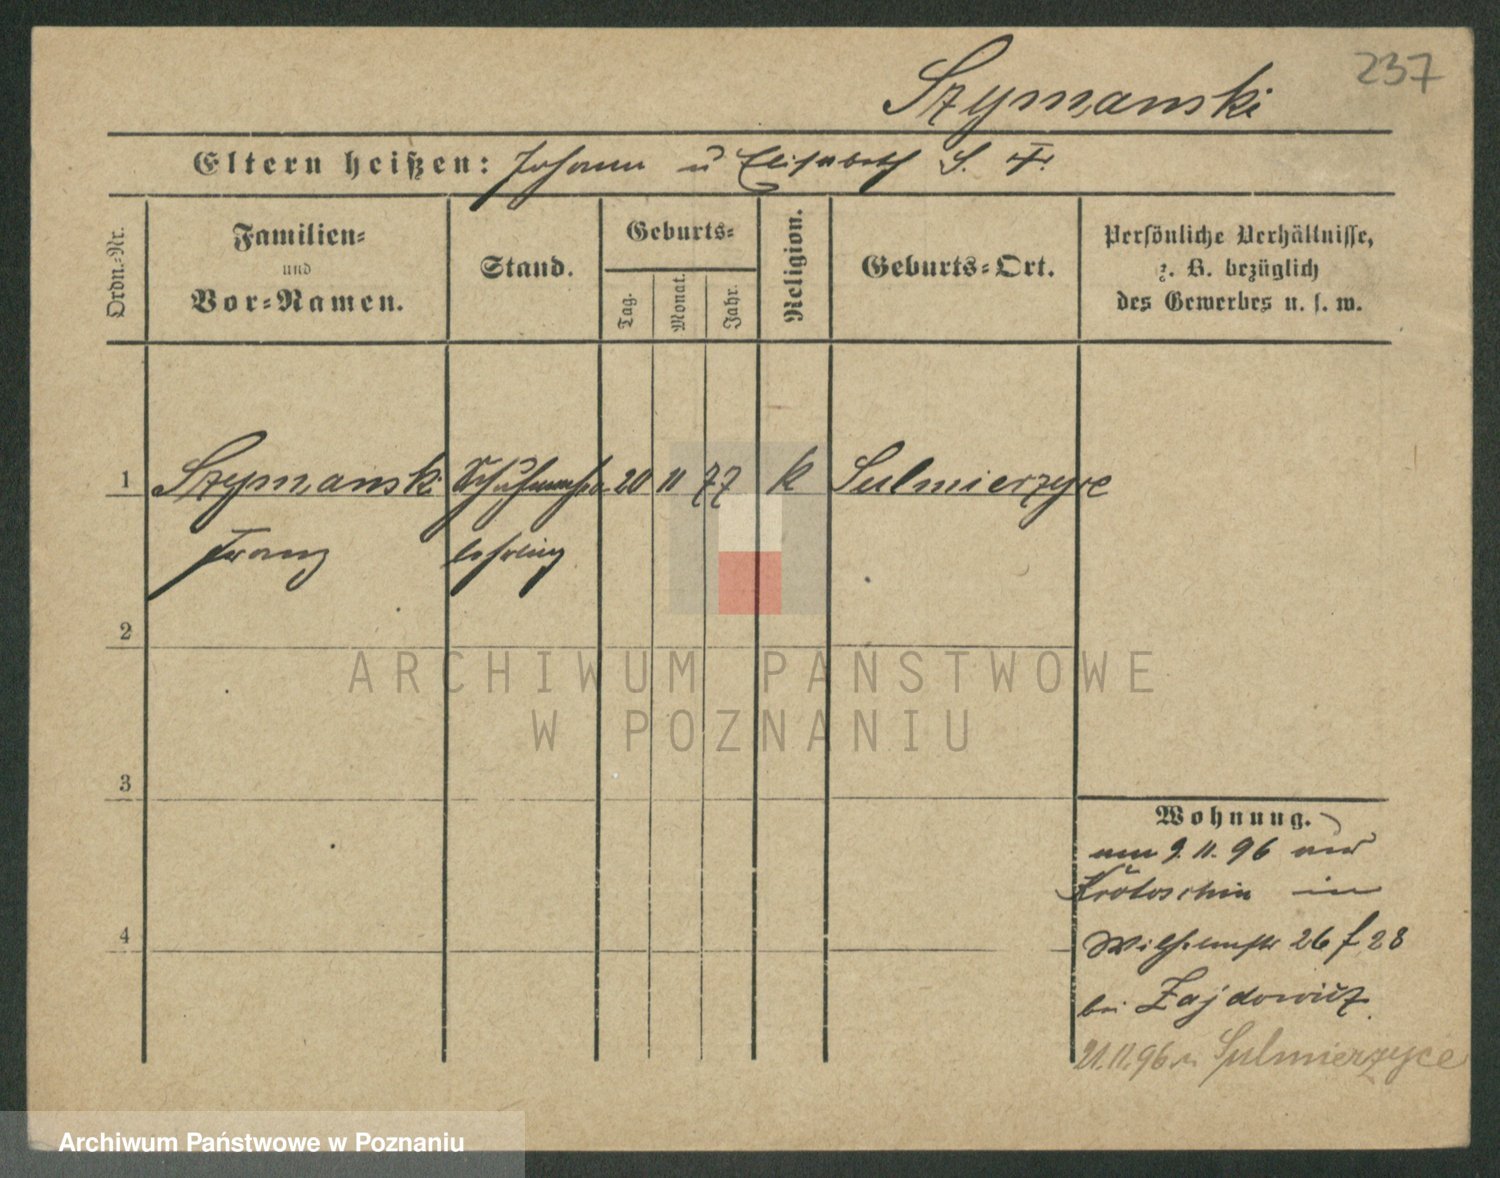 237
Szymanski
Eltern heißen: Johann u Elisabeth S.
Ordn.-Nr.
Familien-
und
Vor-Namen.
Stand.
Geburts-
Tag.
Monat.
Jahr.
Religion.
Geburts-Ort.
Persönliche Verhältnisse,
z. B. bezüglich
des Gewerbes u. s. w.
1 Szymanski 20 11 77 k Sulmierzyce
Franz lehrling
2
ARCHIWUM PAŃSTWOWE
W POZNANIU
3
Wohnung.
am 9.11.96 aus
Krotoschin in
Wilhelmstr 26 f 28
bei Zajdowicz
4
21.11.96 n Sulmierzyce
Archiwum Państwowe w Poznaniu